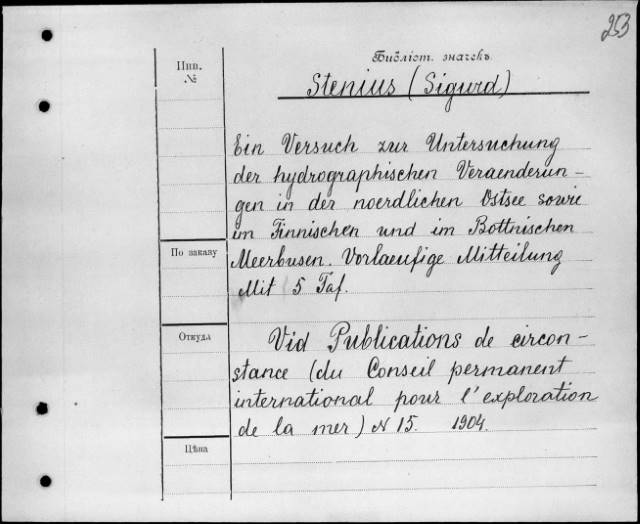 253
Библіот. значекъ.
Инв.
№
Stenius (Sigurd)
Ein Versuch zur Untersuchung
der hydrographischen Veraenderun-
gen in der noerdlichen Ostsee sowie
im Finnischen und im Bottnischen
По заказу
Meerbusen. Vorlaeufige Mitteilung
Mit 5 Taf.
Откуда
Vid Publications de circon-
stance (du Conseil permanent
international pour l'exploration
de la mer) N 15. 1904.
Цѣна